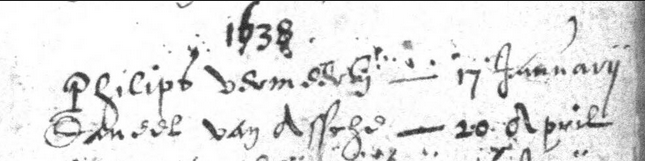 1638
Philips vermeeren — 17 Januarij
Daneel van Assche — 20 April